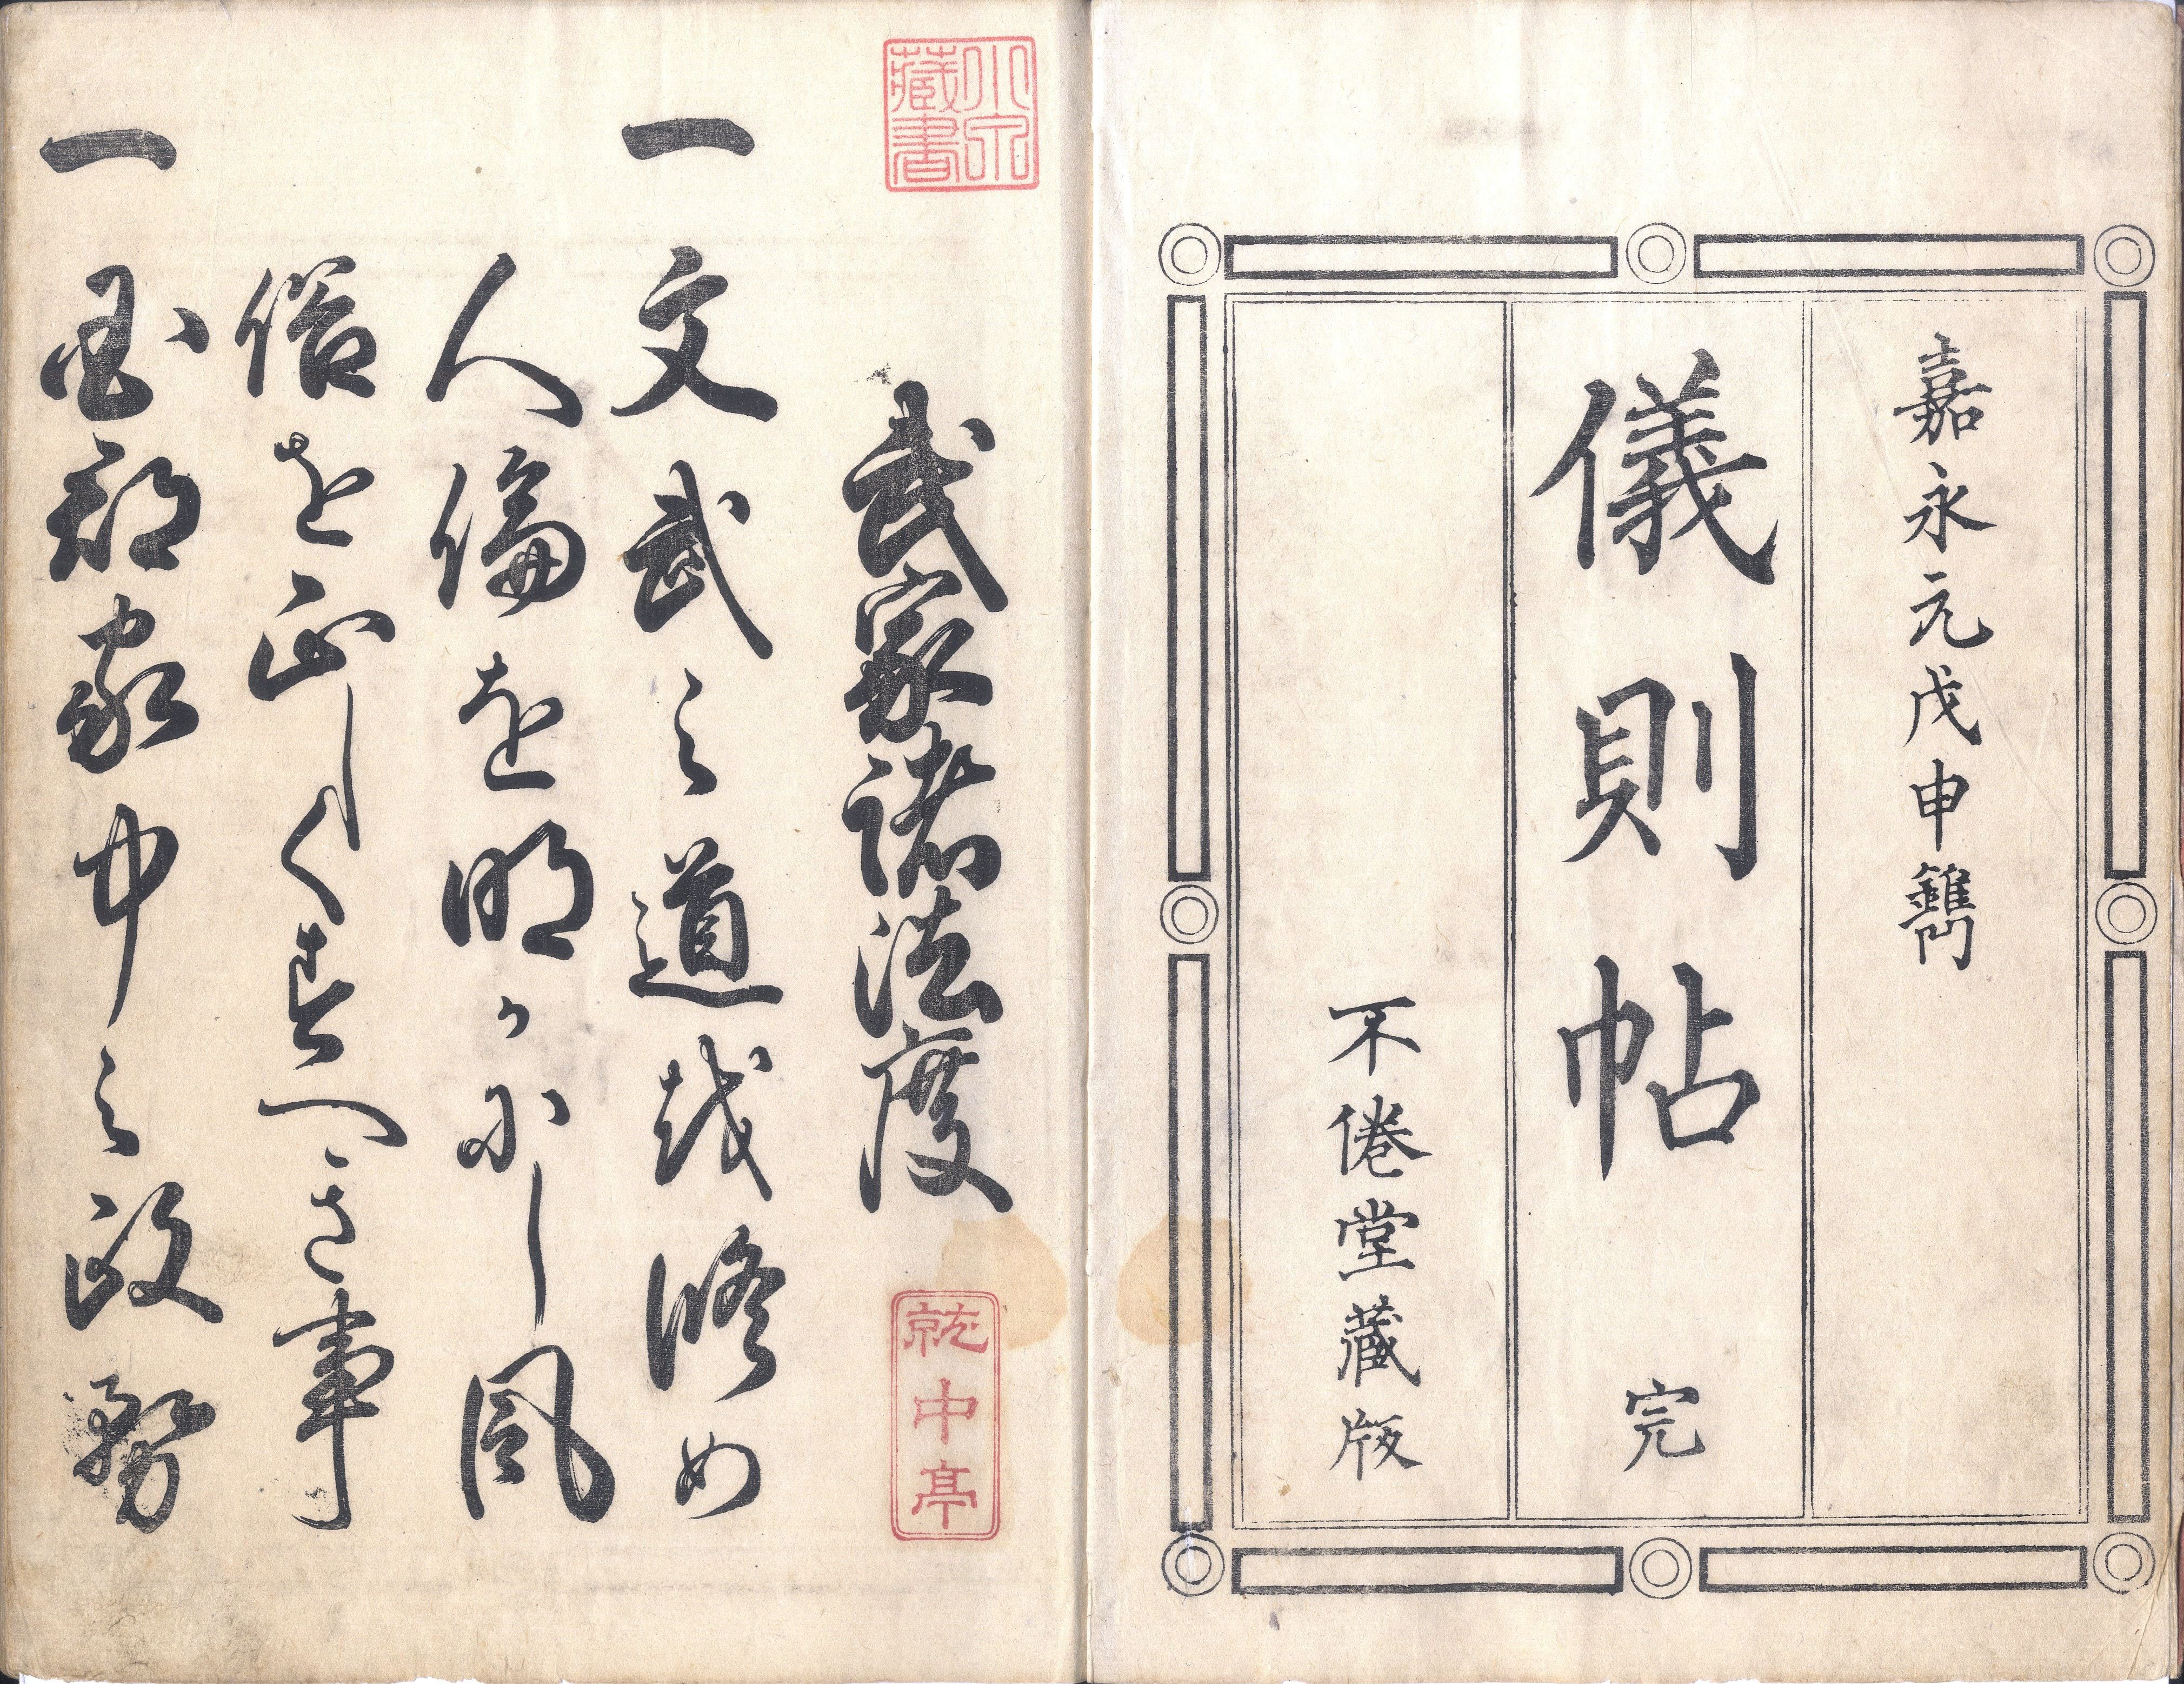 嘉永元戊申鐫
儀則帖 完
不倦堂藏版
武家諸法度
一文武之道越修め
人倫を明カにし風
俗を正しくすへき事
一国郡家中之政務
藏書
就中亭